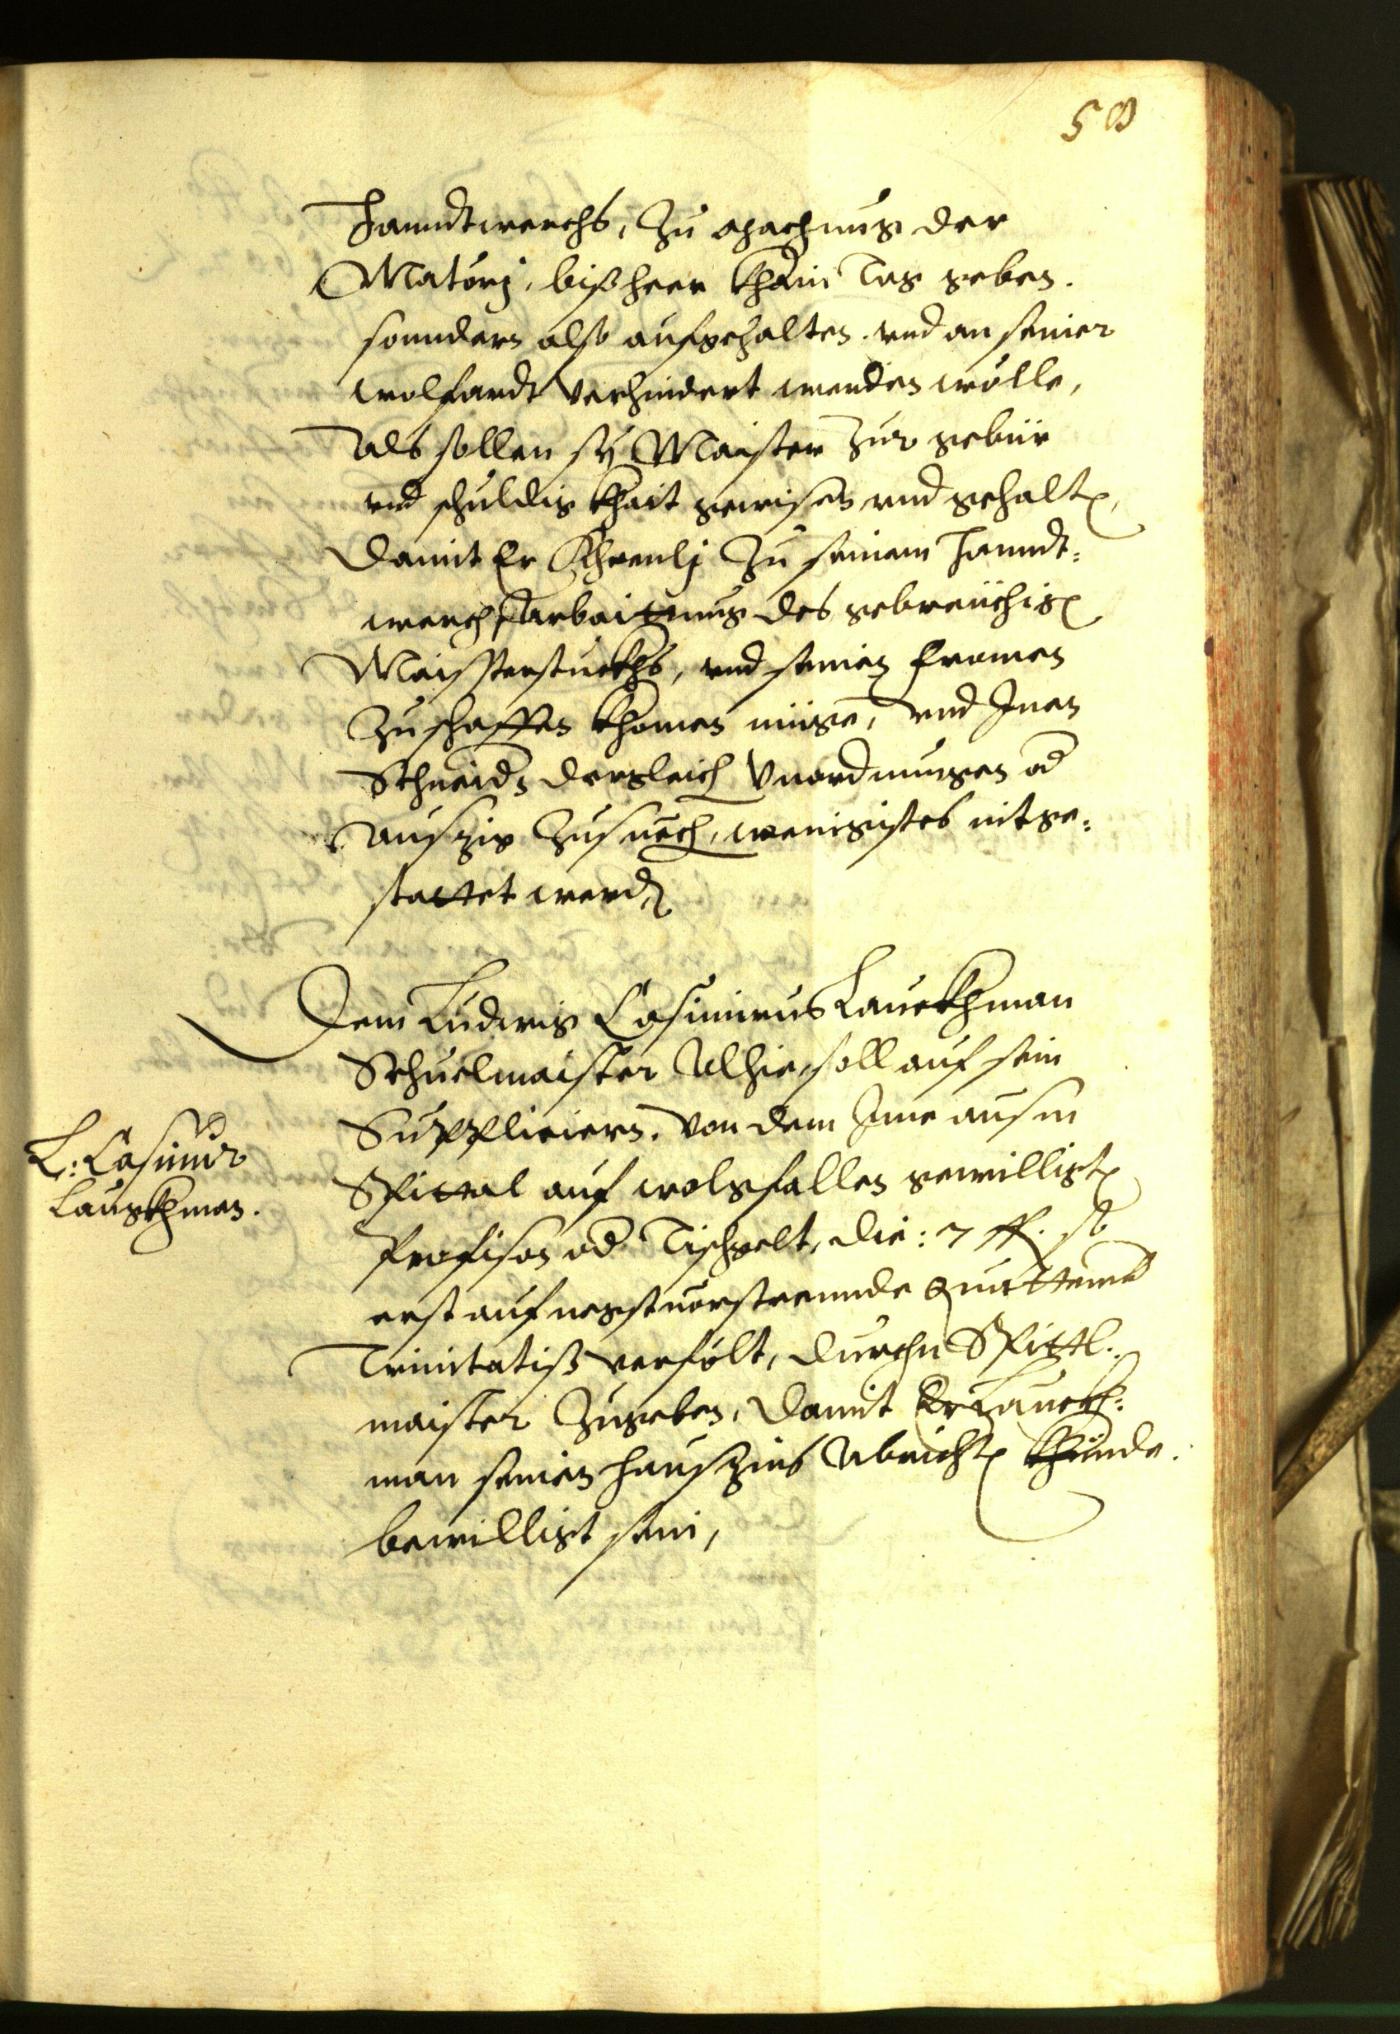 58
Hanndtwerchs, Zu machung der
Maturj, bißheer khain Tag geben.
sonndern also aufgehalten. vnd an seiner
wolfardt verhindert werden wölle,
Als sollen sÿ Maister zur gebür
vnd schuldigkhait gewisen vnd gehalten,
damit Er zu seinem Hanndt:
werch, Arbaittung des gebreüchigen
Maisterstuckhs, vnd seinen fromen
Zuschaffen khomen müge, vnd Inen
Schneidern dergleich Vnordnungen od
auszig Zusuech, wenigistes nit ge:
stattet werden
Dem Ludwig Casimirus Lauckhman
Schuelmaister Alhie, soll auf sein
Suppliciern, von dem Ime ausm
Spittal auf wolgfallen gewilligten
Profison od Tischgelt, die: 7 fl. so
erst auf negstuorsteennde Quattemb
Trinitatiß verfölt, durchn Spittl:
maister Zugeben, damit Er Lauckh:
man seinen hauszins Abrichten khünde.
bewilligt sein,
L: Casimir
Laugkhman.